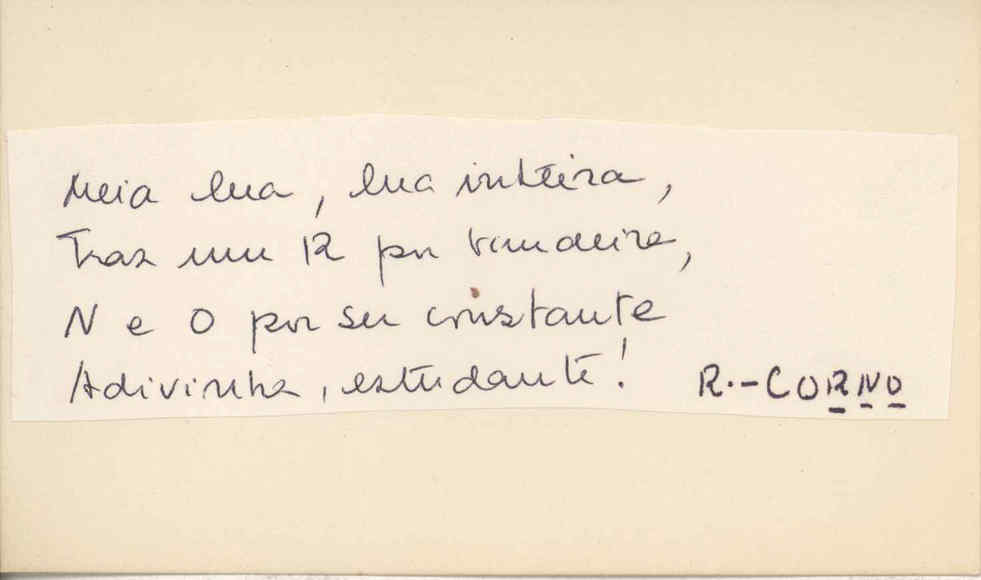 Meia lua, lua inteira,
Traz um R por bandeira,
N e O por ser constante
Adivinha, estudante! R.-CORNO